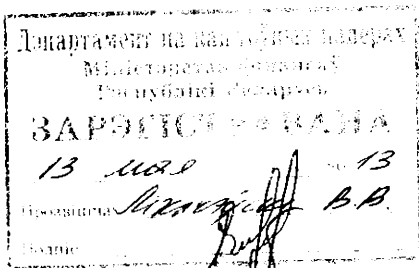 Дэпартамент па каштоўных паперах
Міністэрства фінансаў
Рэспублікі Беларусь
ЗАРЭГІСТРАВАНА
13 мая 13
Прозвішча В.В.
Подпіс